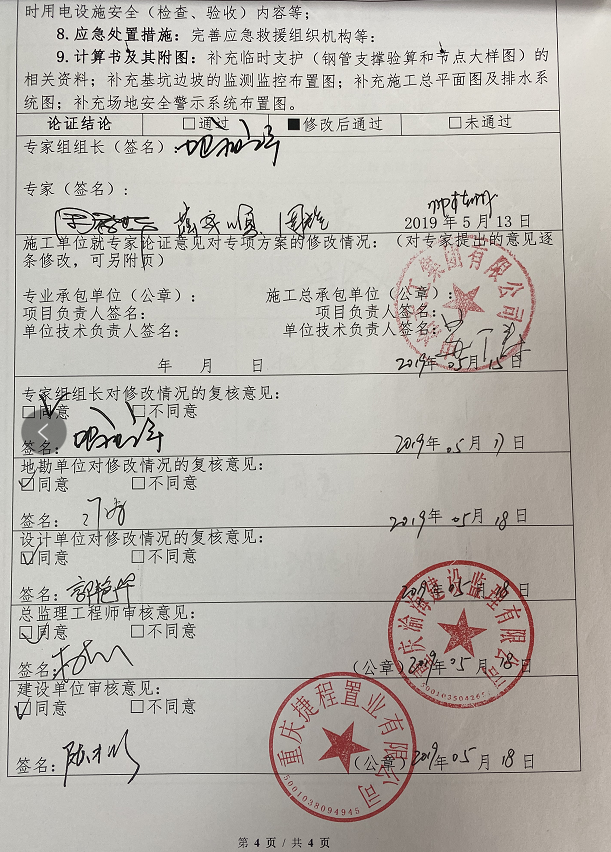 时用电设施安全（检查、验收）内容等；
8.应急处置措施：完善应急救援组织机构等：
9.计算书及其附图：补充临时支护（钢管支撑验算和节点大样图）的
相关资料；补充基坑边坡的监测监控布置图；补充施工总平面图及排水系
统图；补充场地安全警示系统布置图。
论证结论 □通过 ■修改后通过 □未通过
专家组组长（签名）：
专家（签名）：
2019年5月13日
施工单位就专家论证意见对专项方案的修改情况：（对专家提出的意见逐
条修改，可另附页）
集团有限公司
专业承包单位（公章）： 施工总承包单位（公章）：
项目负责人签名： 项目负责人签名：
单位技术负责人签名： 单位技术负责人签名：
年 月 日 2019年05月15日
专家组组长对修改情况的复核意见：
☑同意 □不同意
签名： 2019年05月17日
地勘单位对修改情况的复核意见：
☑同意 □不同意
签名： 2019年05月18日
设计单位对修改情况的复核意见：
☑同意 □不同意
签名： 2019年05月18日
总监理工程师审核意见：
☑同意 □不同意
签名： （公章）2019年05月18日
重庆渝海建设监理有限公司
建设单位审核意见：
☑同意 □不同意
签名： （公章）2019年05月18日
重庆捷程置业有限公司
5001038094945
第 4 页 / 共 4 页